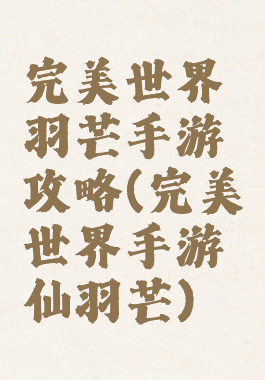 完美世界
羽芒手游
攻略(完美
世界手游
仙羽芒)